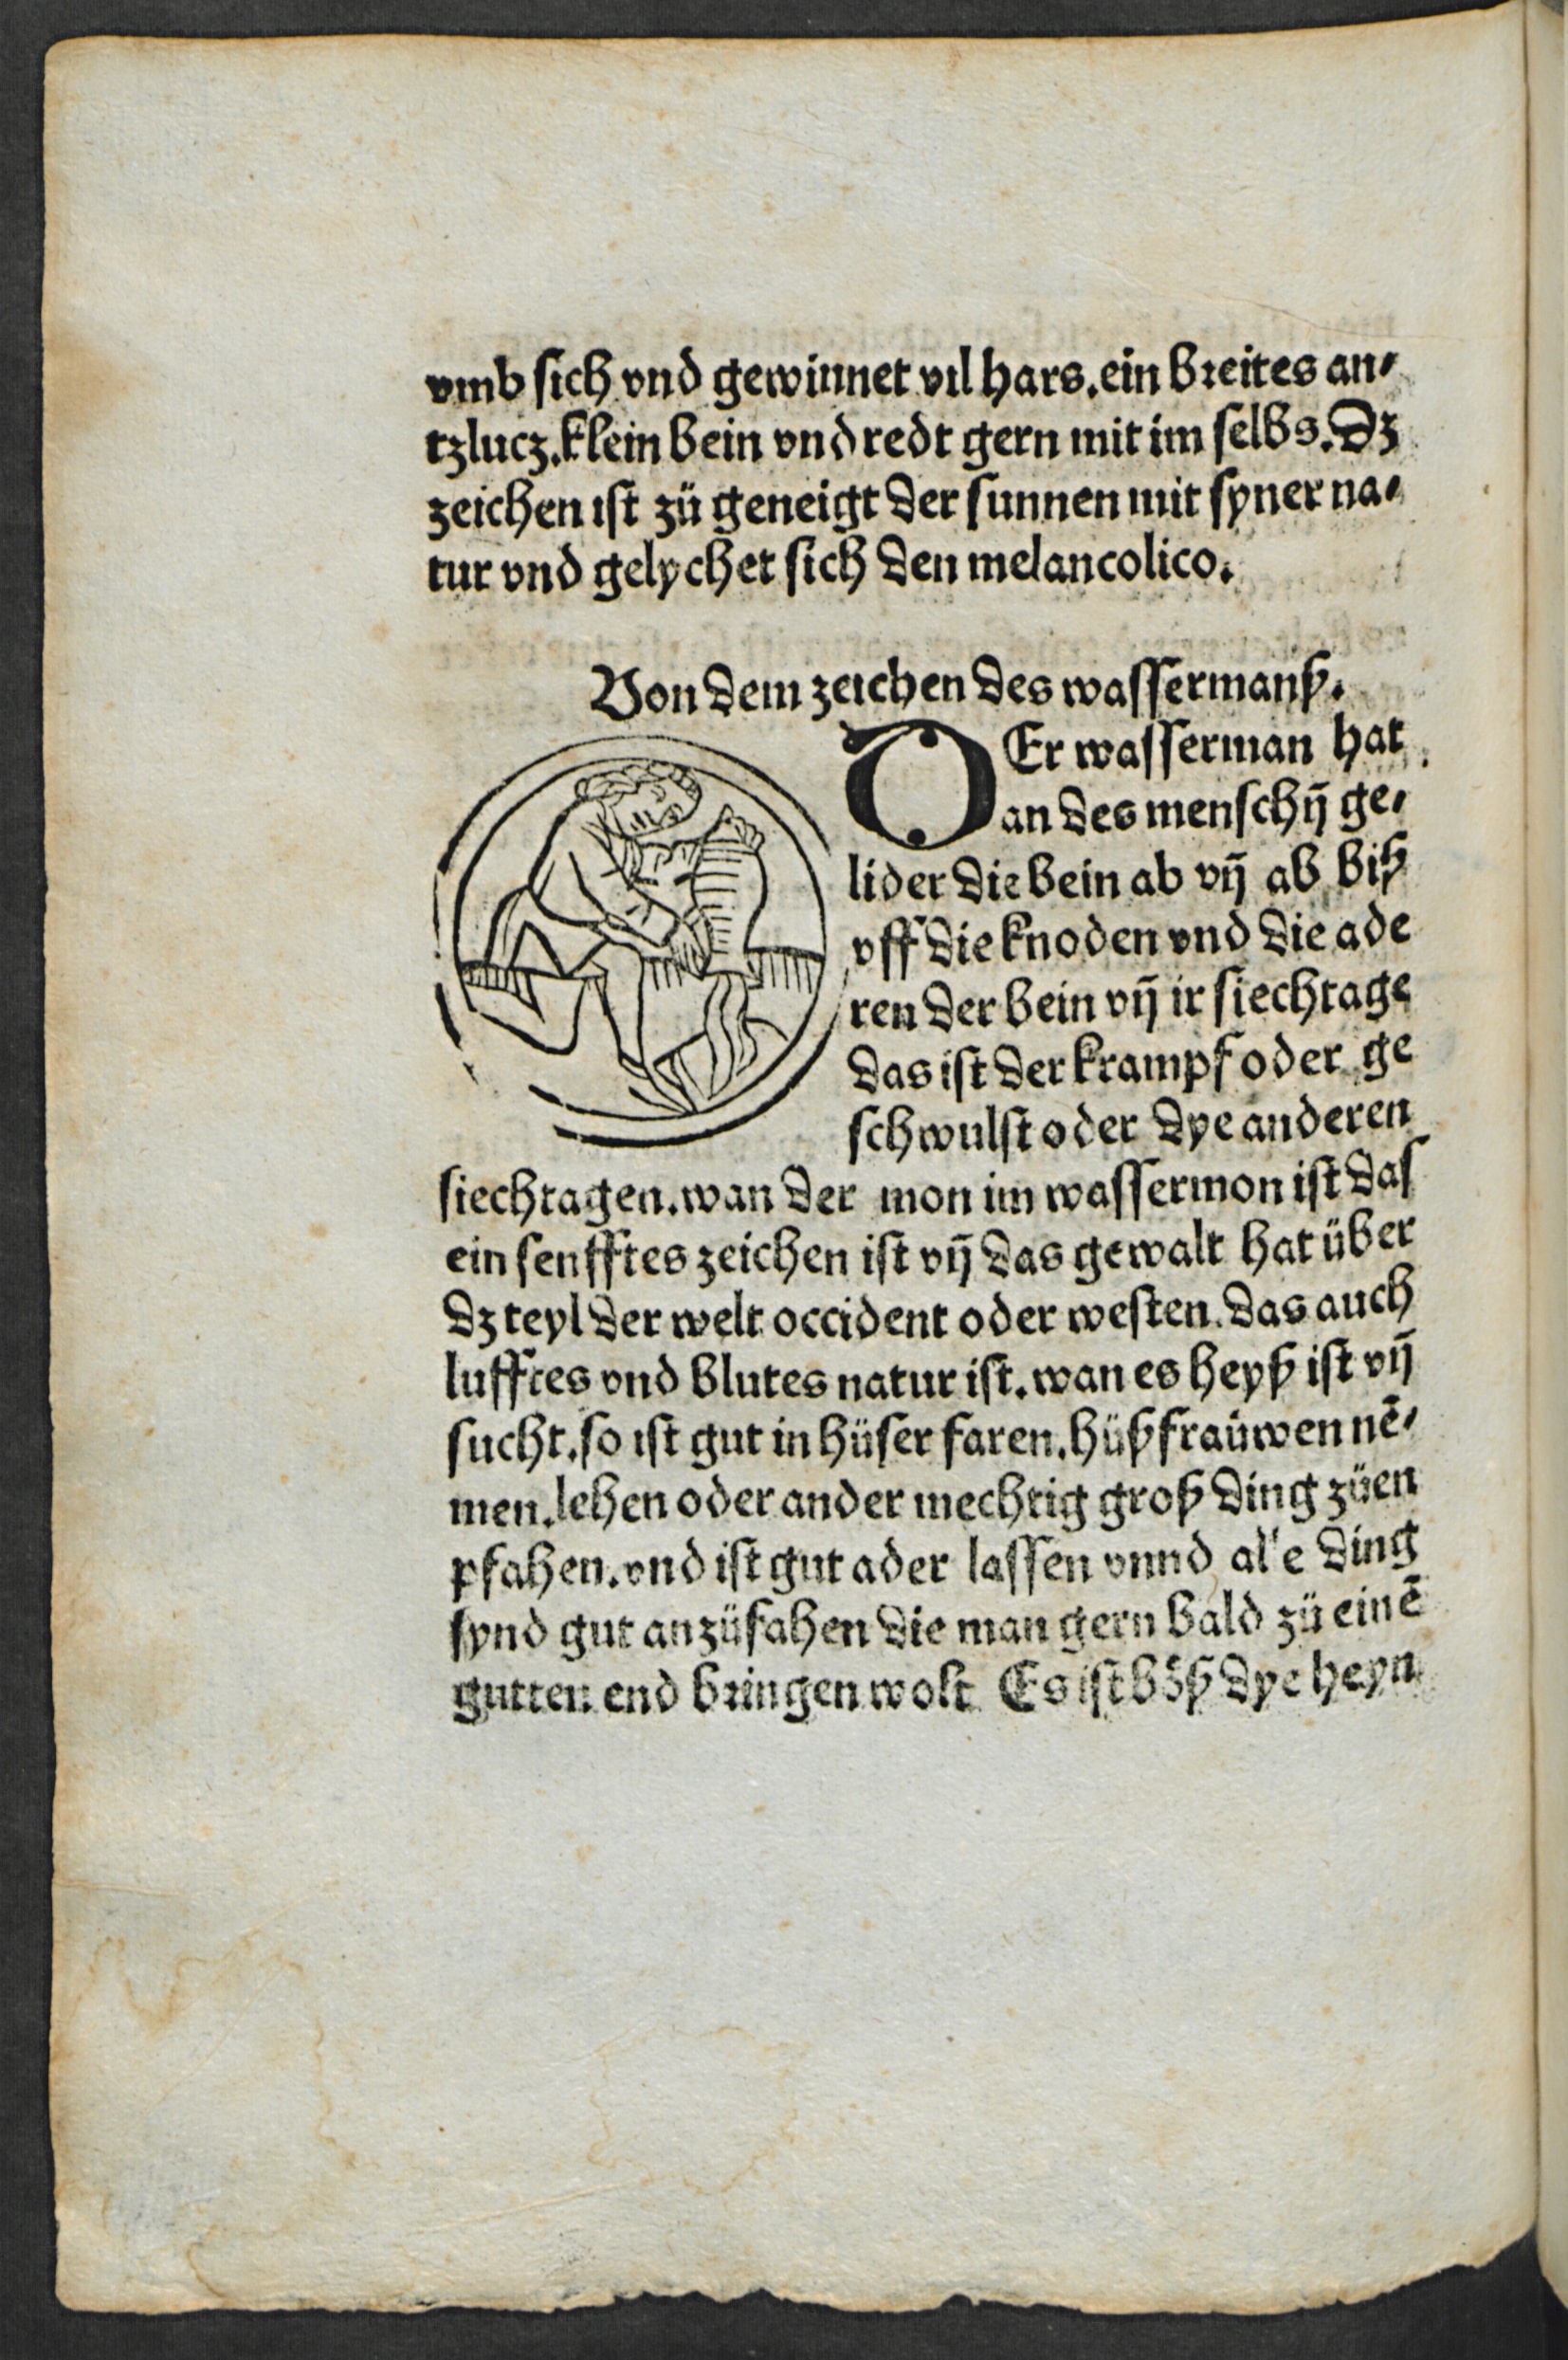 vmb sich vnd gewinnet vil hars. ein breites an⸗
tzlucz. klein bein vnd redt gern mit im selbs. Dz
zeichen ist zü geneigt der sunnen mit syner na⸗
tur vnd gelychet sich den melancolico.
Von dem zeichen des wassermanß.
DEr wasserman hat
an des menschn̄ ge⸗
lider die bein ab vn̄ ab biß
vff die knoden vnd die ade
ren der bein vn̄ ir siechtage
das ist der krampf oder ge
schwulst oder dye anderen
siechtagen. wan der mon im wassermon ist das
ein senfftes zeichen ist vn̄ das gewalt hat über
dz teyl der welt occident oder westen. das auch
lufftes vnd blutes natur ist. wan es heyß ist vn̄
fucht. so ist gut in hüser faren. hüßfraüwen nē⸗
men. lehen oder ander mechtig groß ding züen
pfahen. vnd ist gut ader lassen vnnd alle ding
synd gut anzüfahen die man gern bald zü einē
gutten end bringen wolt Es ist böß dye heyn